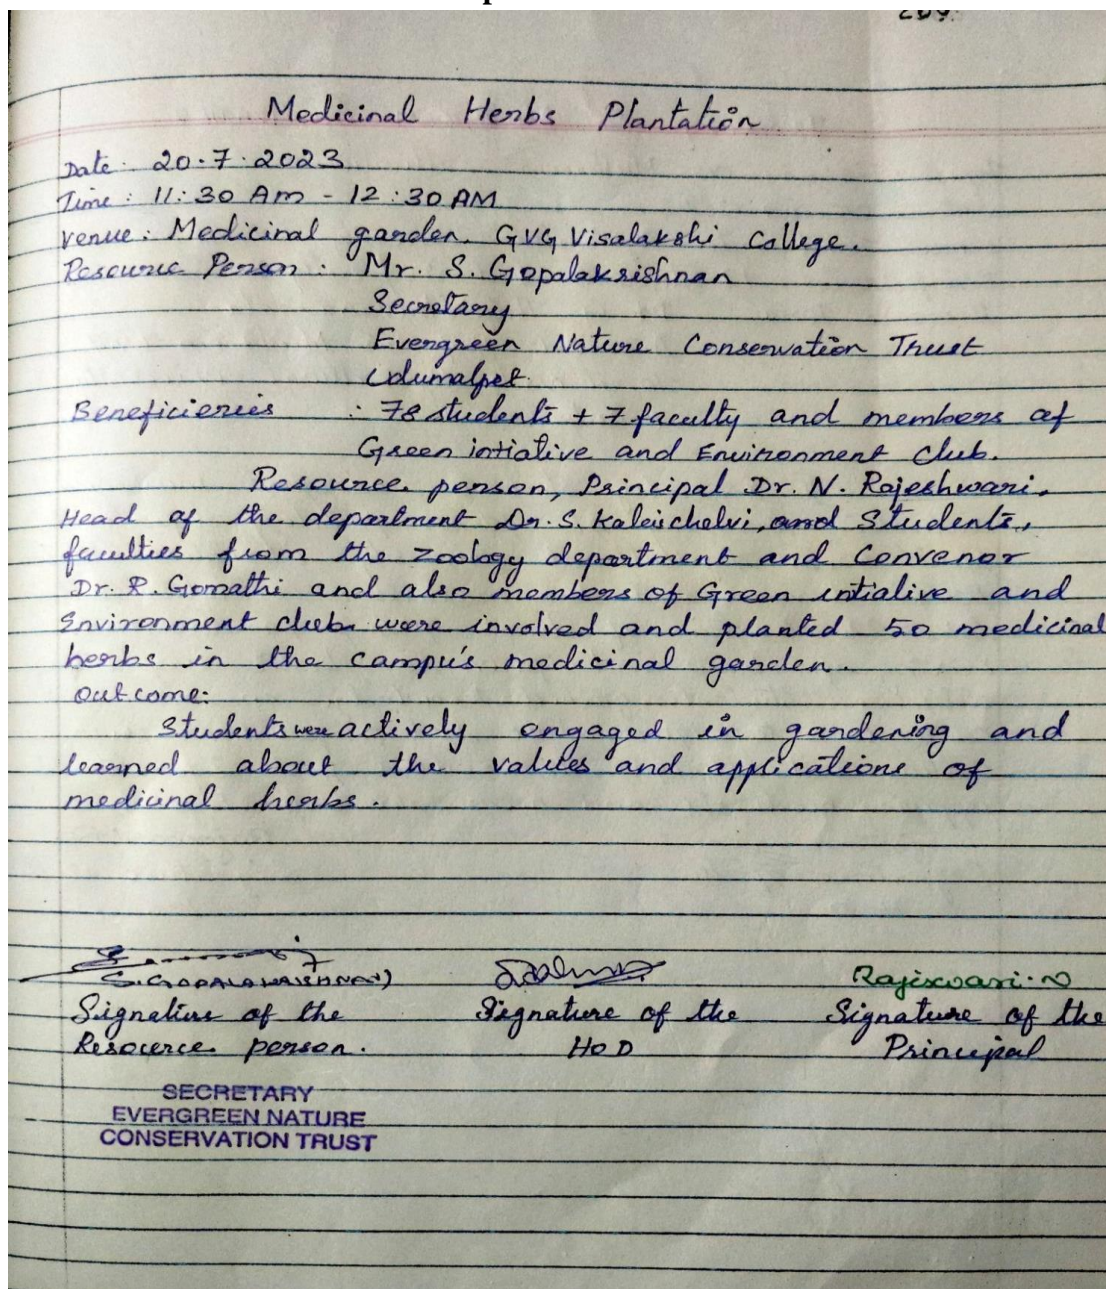 Medicinal Herbs Plantation
Date: 20.7.2023
Time: 11:30 Am - 12:30 AM
Venue: Medicinal garden, GVG Visalakshi College.
Resource Person: Mr. S. Gopalakrishnan
Secretary
Evergreen Nature Conservation Trust
Udumalpet.
Beneficieries : 78 students + 7 faculty and members of
Green intiative and Environment Club.
Resource person, Principal Dr. N. Rajeshwari,
Head of the department Dr. S. Kalaichelvi, and Students,
faculties from the zoology department and Convenor
Dr. R. Gomathi and also members of Green intiative and
Environment club were involved and planted 50 medicinal
herbs in the campus medicinal garden.
Outcome:
Students were actively engaged in gardening and
learned about the values and applications of
medicinal herbs.
S. GOPALAKRISHNAN) Rajiswari. N
Signature of the Signature of the Signature of the
Resource person. HOD Principal
SECRETARY
EVERGREEN NATURE
CONSERVATION TRUST